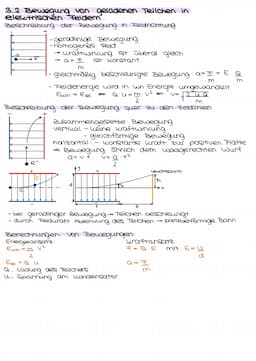 3.2 Bewegung von geladenen Teilchen in
elektrischen Feldern
Beschreibung der Bewegung in Feldrichtung
- geradlinige Bewegung
- homogenes Feld
→ Kraftwirkung ist überall gleich
→ a = F/m ist konstant
- gleichmäßig beschleunigte Bewegung: a = F/m = E Q/m
- Feldenergie wird in kin Energie umgewandelt
E kin = E el ⇔ Q U = m/2 v² ⇔ v = √(2 U Q/m)
Beschreibung der Bewegung quer zu den Feldlinien
- zusammengesetzte Bewegung
vertikal - keine Kraftwirkung
- gleichförmige Bewegung
horizontal - konstante Kraft zur positiven Platte
→ Bewegung ähnlich dem waagerechten Wurf
- bei geradliniger Bewegung → Teilchen beschleunigt
- durch Feldkraft Ablenkung des Teilchen → parabelförmige Bahn
Berechnungen von Bewegungen
Energieansatz Kraftansatz
E kin = m/2 v² F = Q E mit E = U/d
E el = Q U a = F/m
Q... Ladung des Teilchens
U... Spannung am Kondensator